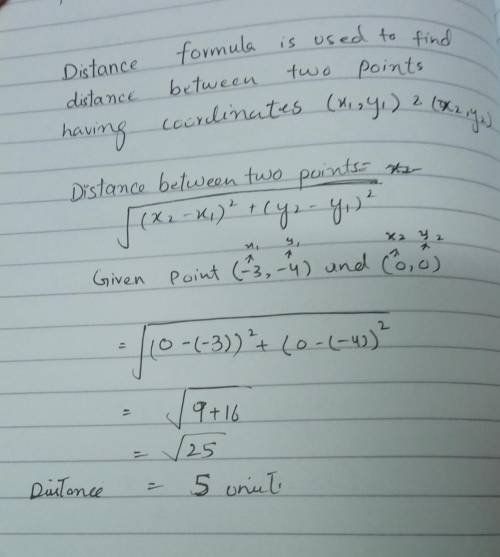 Distance formula is used to find
distance between two points
having coordinates (x₁, y₁) & (x₂, y₂)
Distance between two points=
√(x₂ - x₁)² + (y₂ - y₁)²
x₁ y₁ x₂ y₂
Given point (-3, -4) and (0, 0)
= √(0 - (-3))² + (0 - (-4))²
= √9 + 16
= √25
Distance = 5 unit.